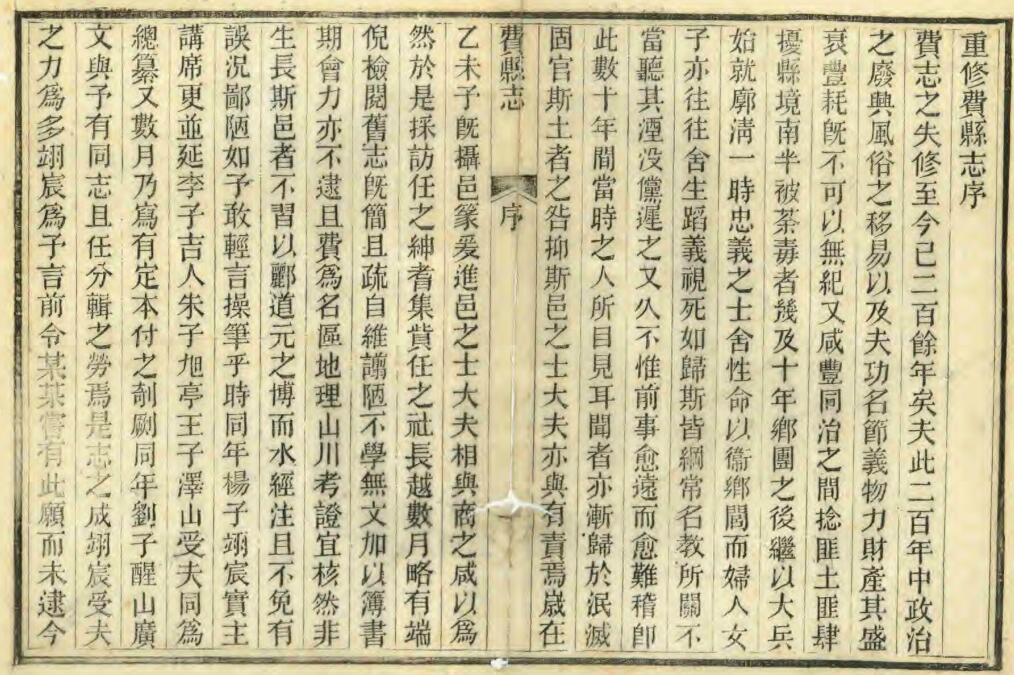 重修費縣志序
費志之失修至今已二百餘年矣夫此二百年中政治
之廢興風俗之移易以及夫功名節義物力財產其盛
衰豐耗旣不可以無紀又咸豐同治之間捻匪土匪肆
擾縣境南半被荼毒者幾及十年鄉團之後繼以大兵
始就廓淸一時忠義之士舍性命以衞鄉閭而婦人女
子亦往往舍生蹈義視死如歸斯皆綱常名教所關不
當聽其湮没儻遲之又久不惟前事愈遠而愈難稽卽
此數十年間當時之人所目見耳聞者亦漸歸於泯滅
固官斯土者之咎抑斯邑之士大夫亦與有責焉歲在
費縣志
序
乙未予旣攝邑篆爰進邑之士大夫相與商之咸以爲
然於是採訪任之紳耆集貲任之社長越數月略有端
倪檢閱舊志旣簡且疏自維謭陋不學無文加以簿書
期會力亦不逮且費爲名區地理山川考證宜核然非
生長斯邑者不習以酈道元之博而水經注且不免有
誤況鄙陋如予敢輕言操筆乎時同年楊子翊宸實主
講席更並延李子吉人朱子旭亭王子澤山受夫同爲
總纂又數月乃寫有定本付之剞劂同年劉子醒山廣
文與予有同志且任分輯之勞焉是志之成翊宸受夫
之力爲多翊宸爲予言前令某某嘗有此願而未逮今